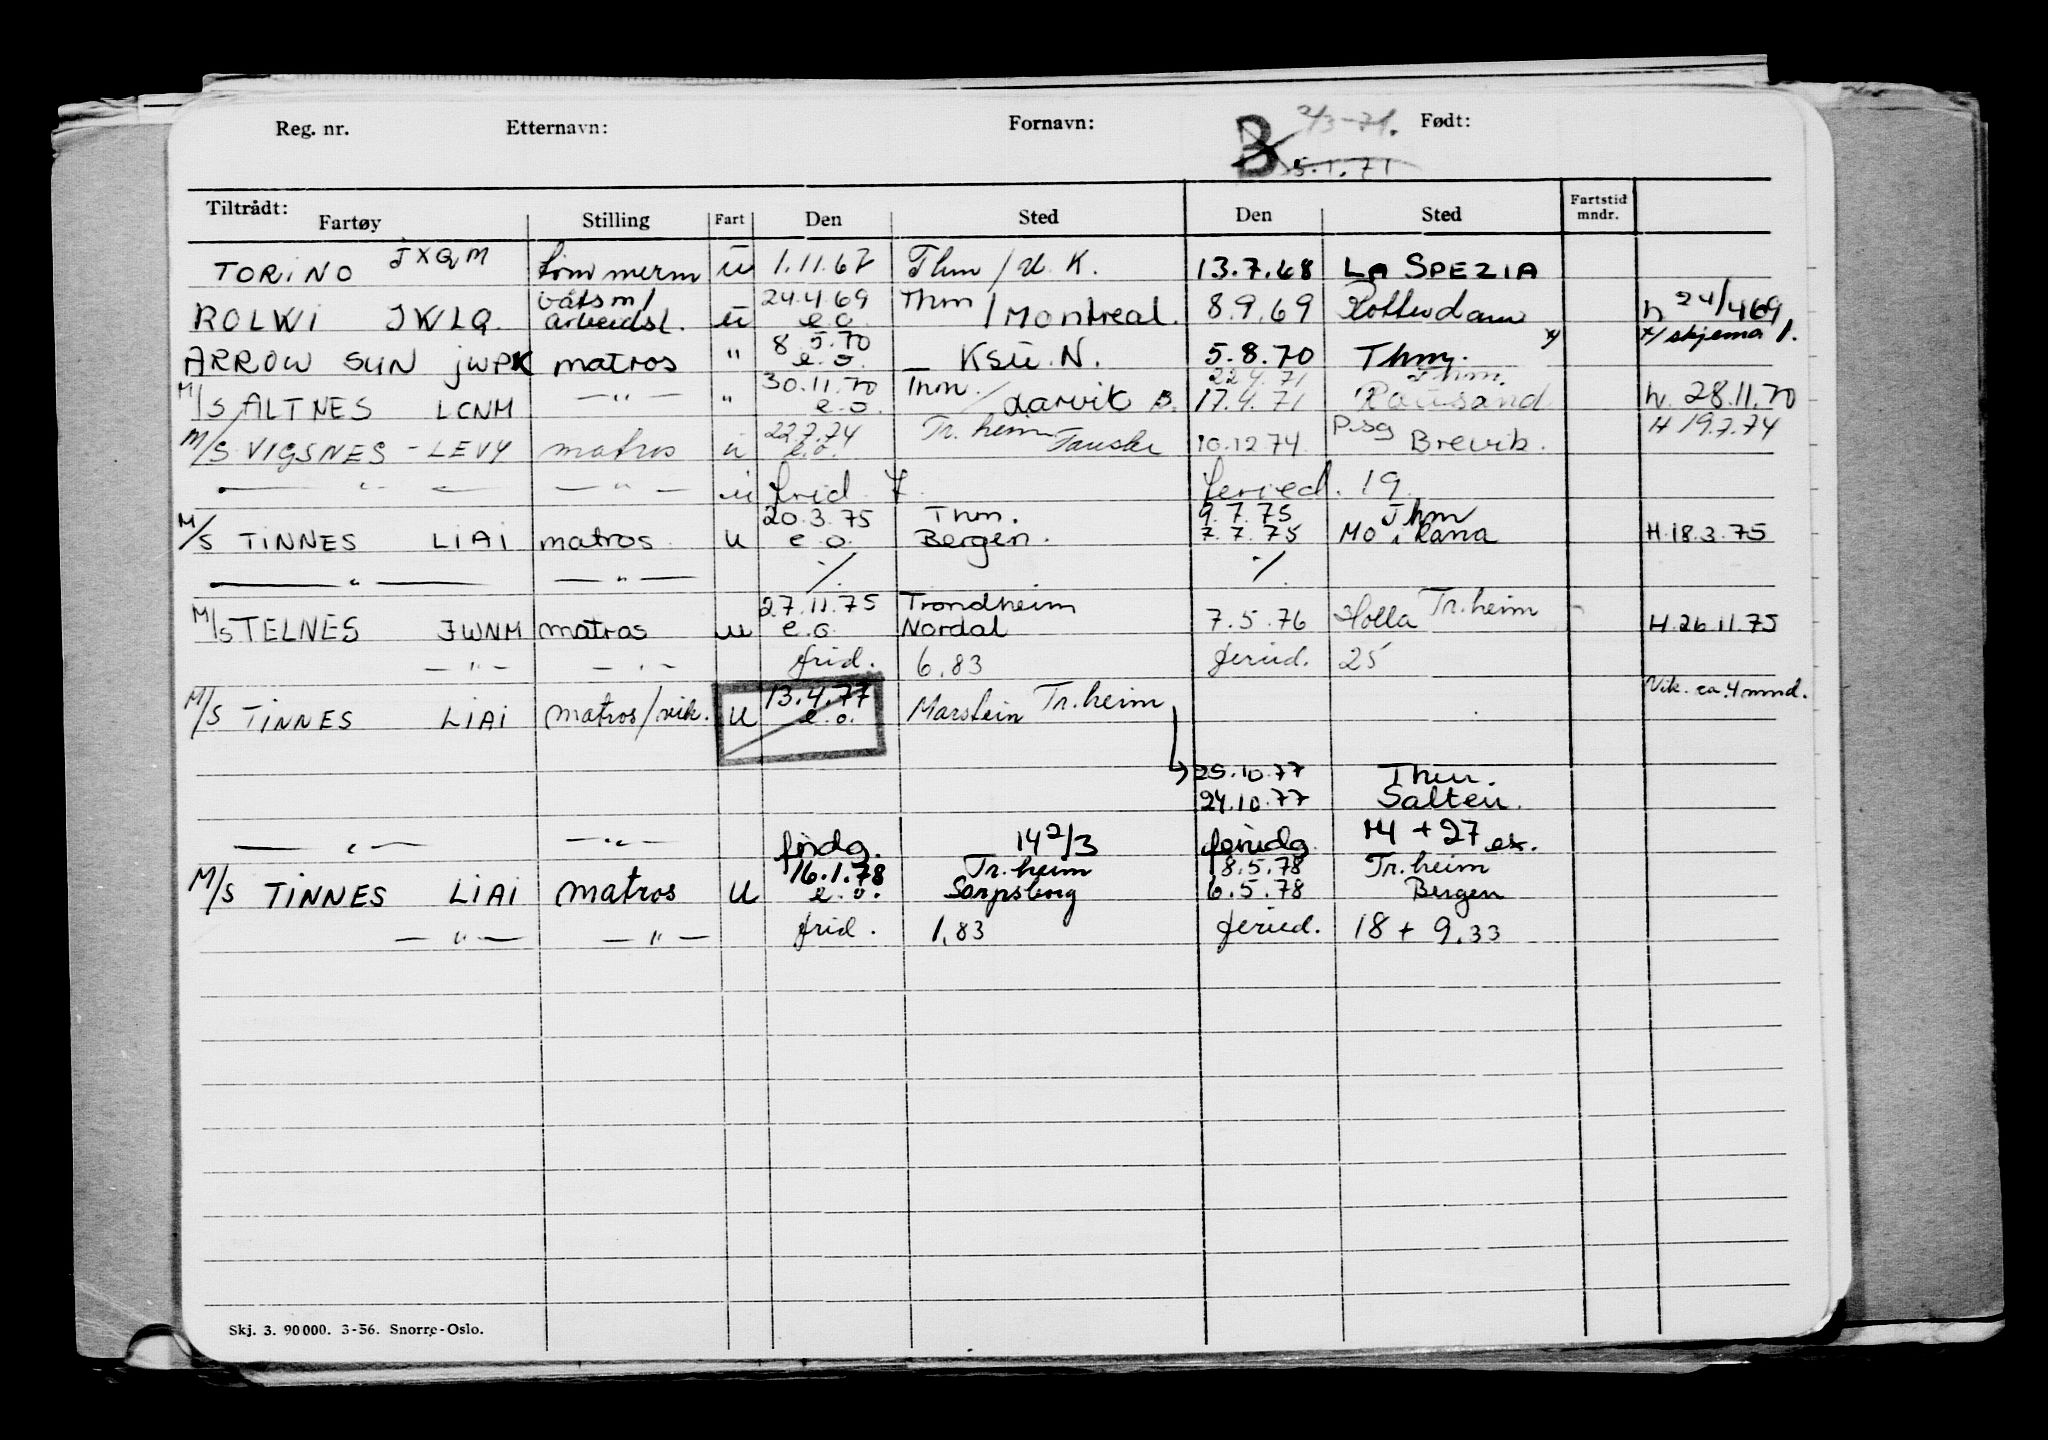 Reg. nr. Etternavn: Fornavn: Født:
B 2/3-71.
5.1.71
Tiltrådt:
Fartøy Stilling Fart Den Sted Den Sted Fartstid mndr.
TORINO JXQM tømmerm ü 1.11.67 Thm / U.K. 13.7.68 LA SPEZIA
ROLWI JWLQ. båtsm/ arbeidsl. ü 24.4.69 e.o. Thm / Montreal. 8.9.69 Rotterdam h 24/4 69
ARROW SUN JWPK matros " 8.5.70 e.o. Ksü. N. 5.8.70 Thm. x/ x/ skjema 1.
M/S ALTNES LCNM —"— " 30.11.70 e.o. Thm. / Larvik B. 22.4.71 Thm. 17.4.71 Rausand h. 28.11.70
M/S VIGSNES - LEVY matros ü 22.7.74 e.o. Tr.heim Fauske 10.12.74 P.sg Brevik. H 19.7.74
—"— —"— ü frid 7. feried. 19.
M/S TINNES LIAI matros u 20.3.75 e.o. Thm. Bergen. 9.7.75 Thm 7.7.75 MO i Rana H.18.3.75
—"— —"— ./. ./.
M/S TELNES JWNM matros u 27.11.75 e.o. Trondheim Nordal 7.5.76 Holla Tr.heim H.26.11.75
—"— —"— frid. 6,83 feried. 25
M/S TINNES LIAI matros/vik. u 13.4.77 e.o. Marstein Tr.heim Vik. ca. 4 mnd.
25.10.77 Thm.
24.10.77 Salten.
—"— —"— fridg. 14 2/3 feriedg. 14 + 27 ex.
M/S TINNES LIAI matros u 16.1.78 e.o. Tr.heim Sarpsborg 8.5.78 Tr.heim 6.5.78 Bergen
—"— —"— frid. 1,83 feried. 18 + 9,33
Skj. 3. 90 000. 3-56. Snorre-Oslo.